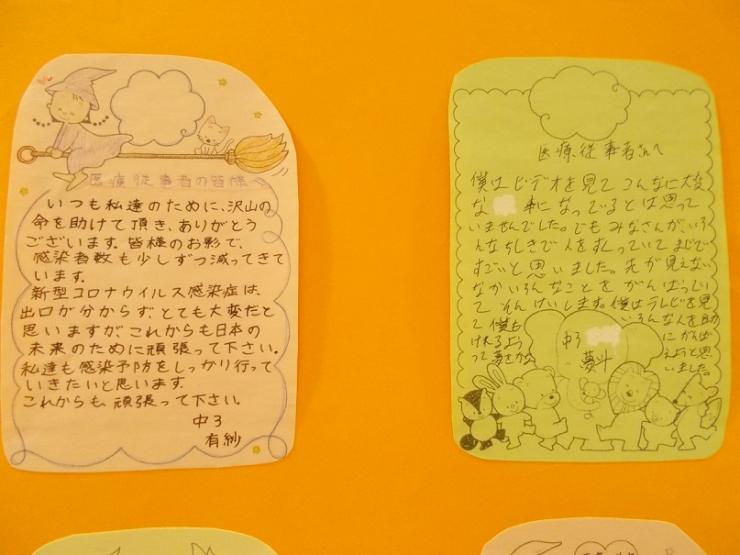 医療従事者の皆様へ
いつも私達のために、沢山の
命を助けて頂き、ありがとう
ございます。皆様のお影で、
感染者数も少しずつ減ってきて
います。
新型コロナウイルス感染症は、
出口が分からず、とても大変だと
思いますが、これからも日本の
未来のために頑張って下さい。
私達も感染予防をしっかり行って
いきたいと思います。
これからも、頑張って下さい。
中3
有紗
医療従事者さんへ
僕はビデオを見てこんなに大変
な 事になっているとは思って
いませんでした。でもみなさんが、いろ
んなちしきで人をすくっていてまじで
すごいと思いました。先が見えない
なかいろんなことをがんばってい
て そんけいします。僕はテレビを見
て 僕も いろんな人を助
けれるよう にがんば
って夢をかな えようと思
いました。
中3
夢斗